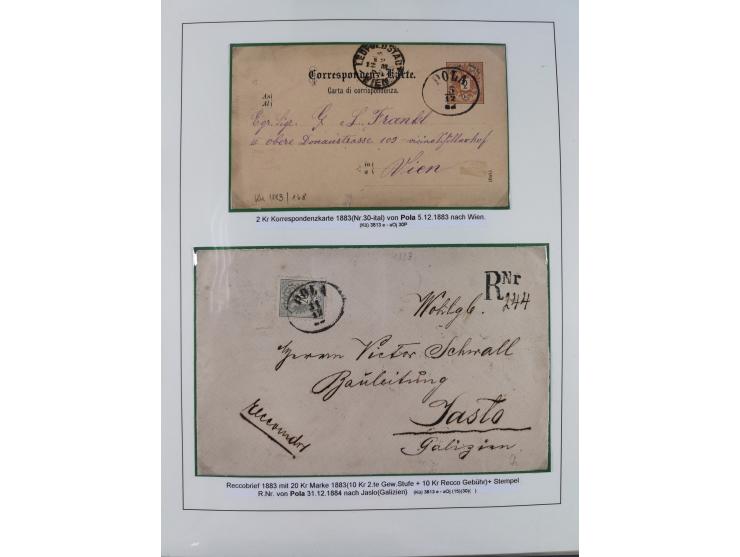 LEOPOLDSTADT
WIEN
Correspondenz-Karte.
Carta di corrispondenza.
POLA
5
12
An
A
Egr. Sig. G. L. Frankl
obere Donaustrasse 109
Wien
in
a
2 Kr Korrespondenzkarte 1883(Nr.30-ital) von Pola 5.12.1883 nach Wien.
(Kü) 3813 e - aOj 30P
1883
POLA
31
12
RNr
244
Wohlgb.
Herrn Victor Schwall
Bauleitung
Jaslo
Galizien
Reccobrief 1883 mit 20 Kr Marke 1883(10 Kr 2.te Gew.Stufe + 10 Kr Recco Gebühr)+ Stempel
R.Nr. von Pola 31.12.1884 nach Jaslo(Galizien) (Kü) 3813 e - aOj (15)(30)( )